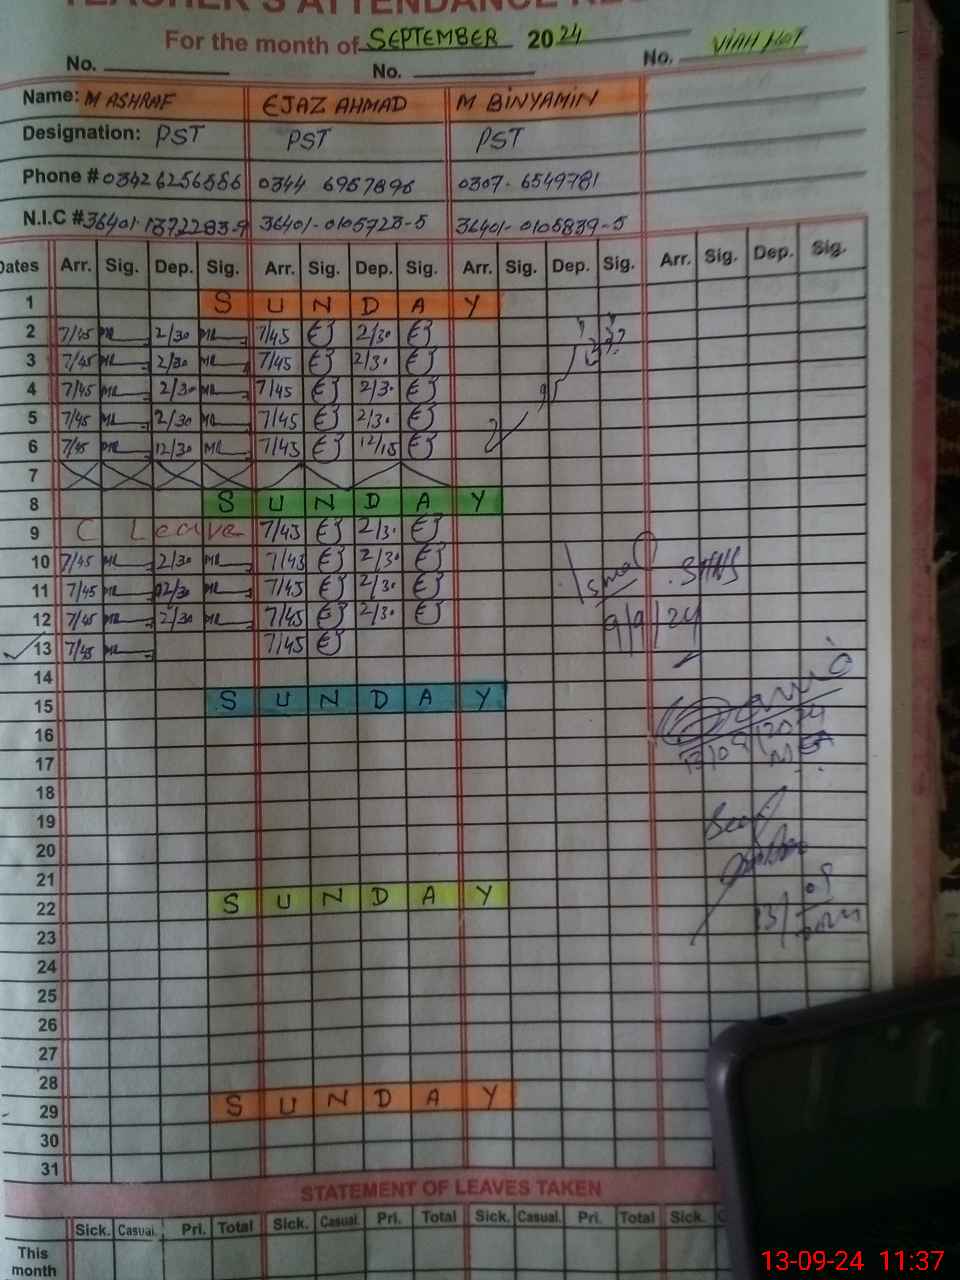 TEACHER'S ATTENDANCE
For the month of SEPTEMBER 2024
No. No. No.
Name: M ASHRAF EJAZ AHMAD M BINYAMIN
Designation: PST PST PST
Phone # 03426256556 0344 6957896 0307-6549781
N.I.C # 36401-1372283-9 36401-0105723-5 36401-0105839-5
Dates Arr. Sig. Dep. Sig. Arr. Sig. Dep. Sig. Arr. Sig. Dep. Sig. Arr. Sig. Dep. Sig.
1 S U N D A Y
2 7/45 2/30 7/45 EJ 2/30 EJ
3 7/45 2/30 7/45 EJ 2/30 EJ
4 7/45 2/30 7/45 EJ 2/30 EJ
5 7/45 2/30 7/45 EJ 2/30 EJ
6 7/45 12/30 7/45 EJ 12/15 EJ
7
8 S U N D A Y
9 C Leave 7/45 EJ 2/30 EJ
10 7/45 2/30 7/45 EJ 2/30 EJ
11 7/45 2/30 7/45 EJ 2/30 EJ
12 7/45 2/30 7/45 EJ 2/30 EJ
9/9/24
13 7/45 7/45 EJ
14
15 S U N D A Y
16
13/09/2024
17
18
19
20
21
22 S U N D A Y
23
24
25
26
27
28
29 S U N D A Y
30
31
STATEMENT OF LEAVES TAKEN
Sick. Casual. Pri. Total Sick. Casual. Pri. Total Sick. Casual. Pri. Total Sick.
This month
13-09-24 11:37